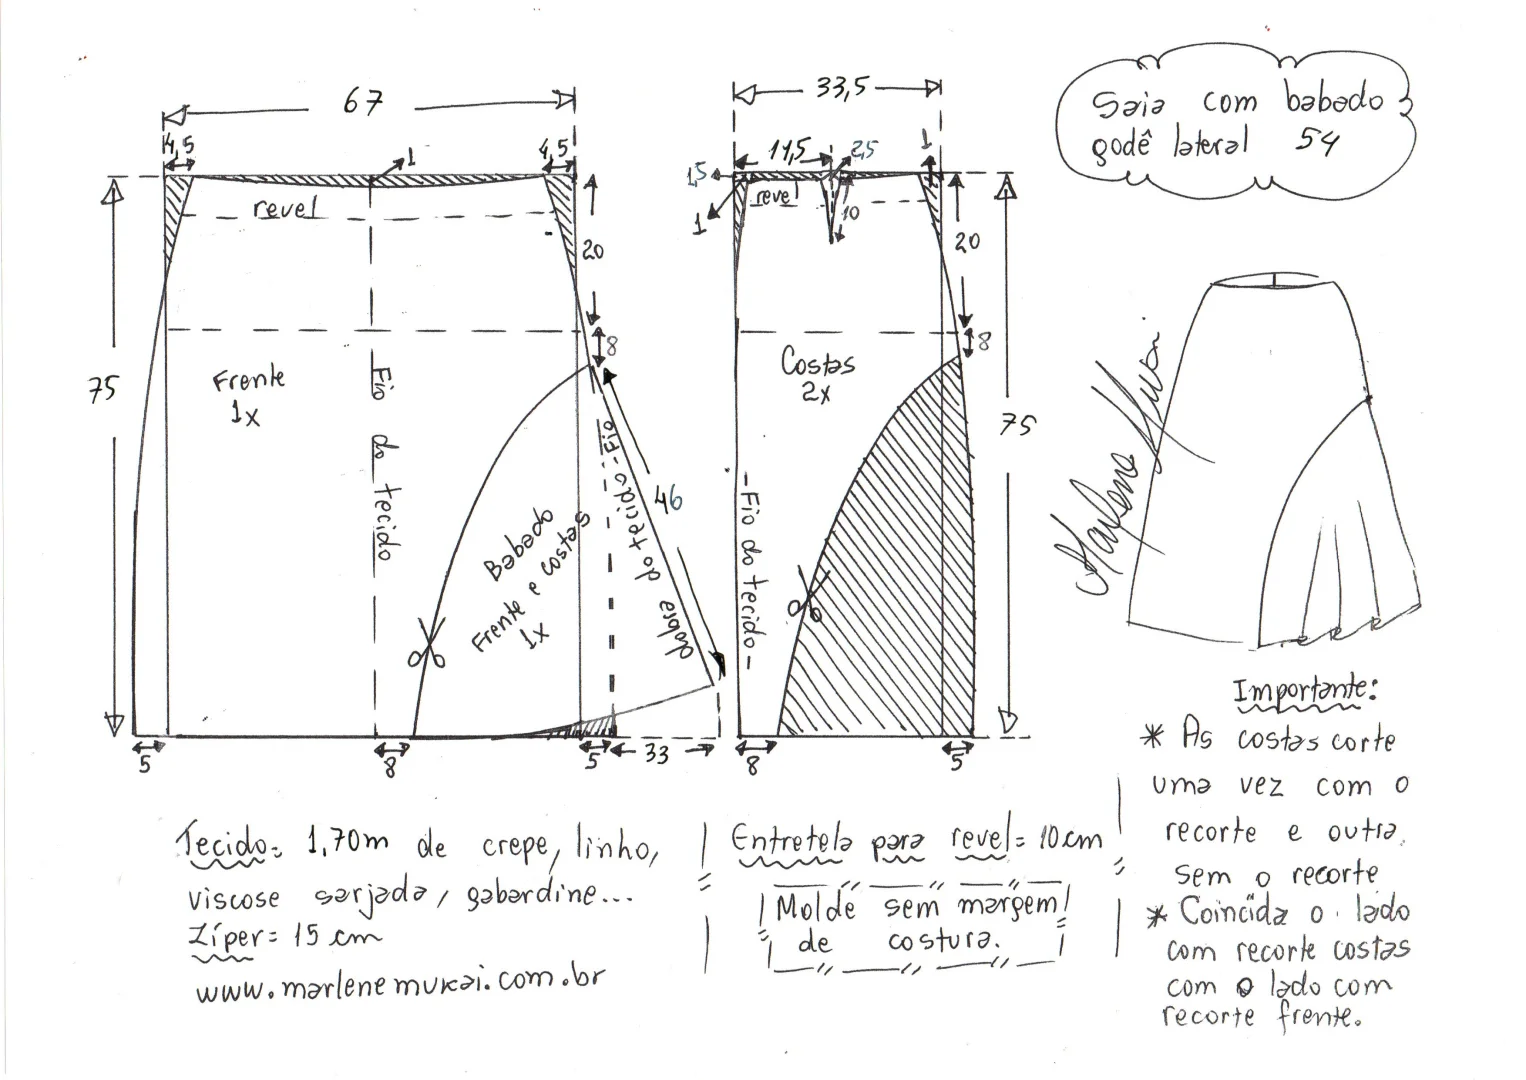 Saia com babado
godê lateral 54
67
4,5
4,5
1
revel
20
8
75
Frente
1x
Fio do tecido
Babado
Frente e costas
1x
dobra do tecido - Fio
46
5
8
5
33
33,5
11,5
2,5
1
1,5
1
revel
10
20
8
Costas
2x
75
- Fio do tecido -
8
5
Marlene Mukai
Importante:
* As costas corte
uma vez com o
recorte e outra
sem o recorte
* Coincida o lado
com recorte costas
com o lado com
recorte frente.
Tecido= 1,70m de crepe, linho,
viscose sarjada, gabardine...
Zíper= 15 cm
www.marlenemukai.com.br
Entretela para revel= 10cm
Molde sem margem
de costura.